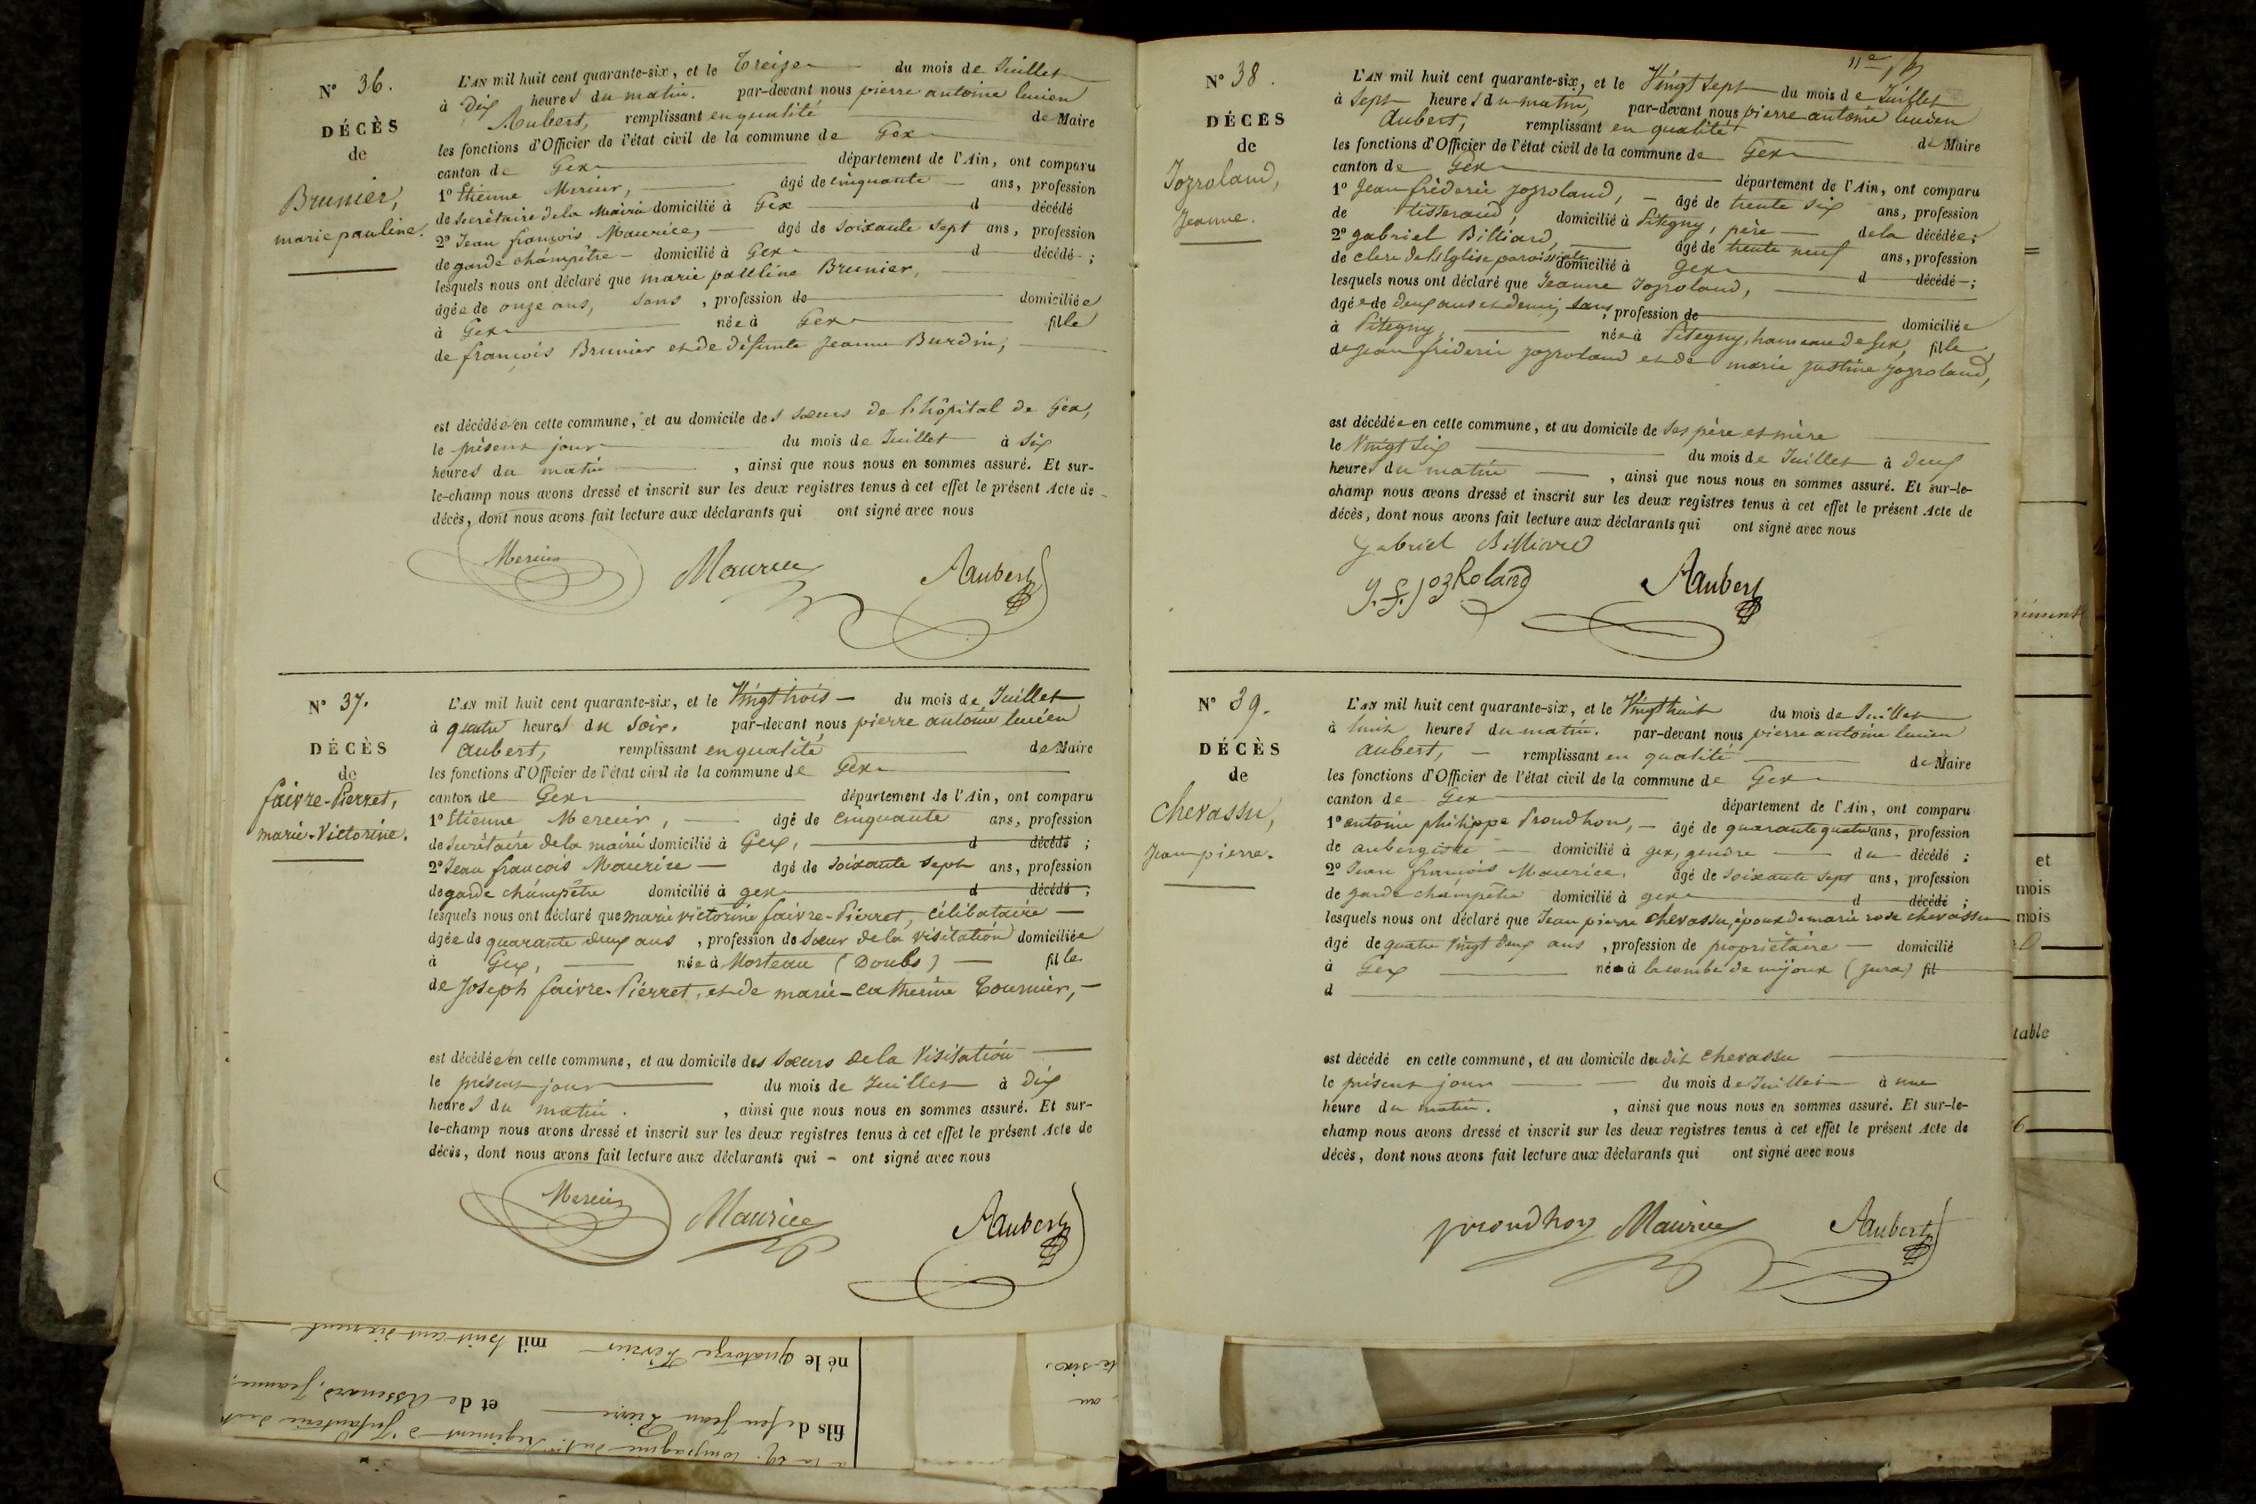 N° 36.
DÉCÈS
de
Brunier,
marie pauline.
L'AN mil huit cent quarante-six, et le Treize du mois de Juillet
à Dix heures du matin. par-devant nous pierre antoine lucien
Aubert, remplissant en qualité de Maire
les fonctions d'Officier de l'état civil de la commune de Gex
canton de Gex département de l'Ain, ont comparu
1° Etienne Mercier, âgé de cinquante ans, profession
de Secrétaire de la Mairie domicilié à Gex d décédé
2° Jean françois Maurice, âgé de Soixante Sept ans, profession
de garde champêtre domicilié à Gex d décédé ;
lesquels nous ont déclaré que marie pauline Brunier,
âgée de onze ans, sans , profession de domiciliée
à Gex née à Gex fille
de françois Brunier et de défunte Jeanne Burdin,
est décédée en cette commune, et au domicile des sœurs de l'hôpital de Gex,
le présent jour du mois de Juillet à Six
heures du matin , ainsi que nous nous en sommes assuré. Et sur-
le-champ nous avons dressé et inscrit sur les deux registres tenus à cet effet le présent Acte de
décès, dont nous avons fait lecture aux déclarants qui ont signé avec nous
Mercier Maurice Aaubert
N° 37.
DÉCÈS
de
faivre-Pierret,
marie-Victorine.
L'AN mil huit cent quarante-six, et le Vingt trois du mois de Juillet
à quatre heures du Soir. par-devant nous pierre antoine lucien
aubert, remplissant en qualité de Maire
les fonctions d'Officier de l'état civil de la commune de Gex
canton de Gex département de l'Ain, ont comparu
1° Etienne Mercier, âgé de Cinquante ans, profession
de Secrétaire de la mairie domicilié à Gex, d décédé ;
2° Jean françois Maurice âgé de Soixante Sept ans, profession
de garde champêtre domicilié à gex d décédé ;
lesquels nous ont déclaré que marie victorine faivre-Pierret, célibataire
âgée de quarante deux ans , profession de Sœur de la visitation domiciliée
à Gex, née à Morteau (Doubs) fille
de Joseph faivre-Pierret, et de marie-catherine Tournier,
est décédée en cette commune, et au domicile des Sœurs de la Visitation
le présent jour du mois de Juillet à Dix
heures du matin. , ainsi que nous nous en sommes assuré. Et sur-
le-champ nous avons dressé et inscrit sur les deux registres tenus à cet effet le présent Acte de
décès, dont nous avons fait lecture aux déclarants qui ont signé avec nous
Mercier Maurice Aaubert
N° 38.
DÉCÈS
de
Jozroland,
Jeanne.
L'AN mil huit cent quarante-six, et le Vingt Sept du mois de Juillet
à Sept heures du matin, par-devant nous pierre antoine lucien
Aubert, remplissant en qualité de Maire
les fonctions d'Officier de l'état civil de la commune de Gex
canton de Gex département de l'Ain, ont comparu
1° Jean fréderic jozroland, âgé de trente Six ans, profession
de tisserand, domicilié à Pitegny, père de la décédée ;
2° gabriel Billiard, âgé de trente neuf ans, profession
de clerc de l'Eglise paroissiale domicilié à Gex d décédé ;
lesquels nous ont déclaré que Jeanne Jozroland,
âgée de deux ans et demi, sans, profession de domiciliée
à Pitegny, née à Pitegny, hameau de Gex, fille
de Jean fréderic jozroland et de marie justine jozroland,
est décédée en cette commune, et au domicile de ses père et mère
le Vingt Six du mois de Juillet à deux
heures du matin , ainsi que nous nous en sommes assuré. Et sur-le-
champ nous avons dressé et inscrit sur les deux registres tenus à cet effet le présent Acte de
décès, dont nous avons fait lecture aux déclarants qui ont signé avec nous
gabriel Billiard
J. f. JozRoland Aaubert
N° 39.
DÉCÈS
de
Chevassu,
Jean pierre.
L'AN mil huit cent quarante-six, et le Vingt huit du mois de Juillet
à huit heures du matin. par-devant nous pierre antoine lucien
aubert, remplissant en qualité de Maire
les fonctions d'Officier de l'état civil de la commune de Gex
canton de Gex département de l'Ain, ont comparu
1° antoine philippe Proudhon, âgé de quarante quatre ans, profession
de aubergiste domicilié à gex, gendre du décédé ;
2° Jean françois Maurice, âgé de Soixante Sept ans, profession
de garde champêtre domicilié à gex d décédé ;
lesquels nous ont déclaré que Jean pierre chevassu, époux de marie rose chevassu
âgé de quatre Vingt deux ans , profession de propriétaire domicilié
à Gex né à la combe de mijoux (jura) fil
d
est décédé en cette commune, et au domicile dudit chevassu
le présent jour du mois de Juillet à une
heure du matin. , ainsi que nous nous en sommes assuré. Et sur-le-
champ nous avons dressé et inscrit sur les deux registres tenus à cet effet le présent Acte de
décès, dont nous avons fait lecture aux déclarants qui ont signé avec nous
proudhon Maurice Aaubert
et
mois
mois
table
fils de feu Jean Pierre et de Jeanne
né le quatorze février mil huit cent